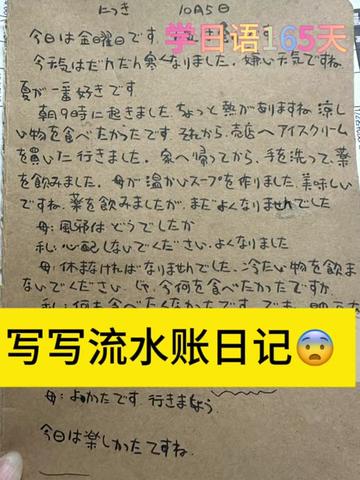 にっき 10月5日
今日は金曜日です
学日语165天
今天気はだんだん寒くなりました。嫌い天気ですね
夏が一番好きです
朝9時に起きました、ちょっと熱がありますね、涼し
い物を食べたかったです それから、売店へアイスクリーム
を買いに行きました。家へ帰ってから、手を洗って、薬
を飲みました。母が温かいスープを作りました、美味しい
ですね、薬を飲みましたが、まだよくなりませんでした
母:風邪はどうでしたか
私:心配しないでください、よくなりました
母:休まなければなりませんでした、冷たい物を飲ま
ないでください、じゃ、今何を食べたかったですか
私:何も食べたくなかったです、でも、
写写流水账日记😨
母:よかたです 行きましょう
今日は楽しかってすね